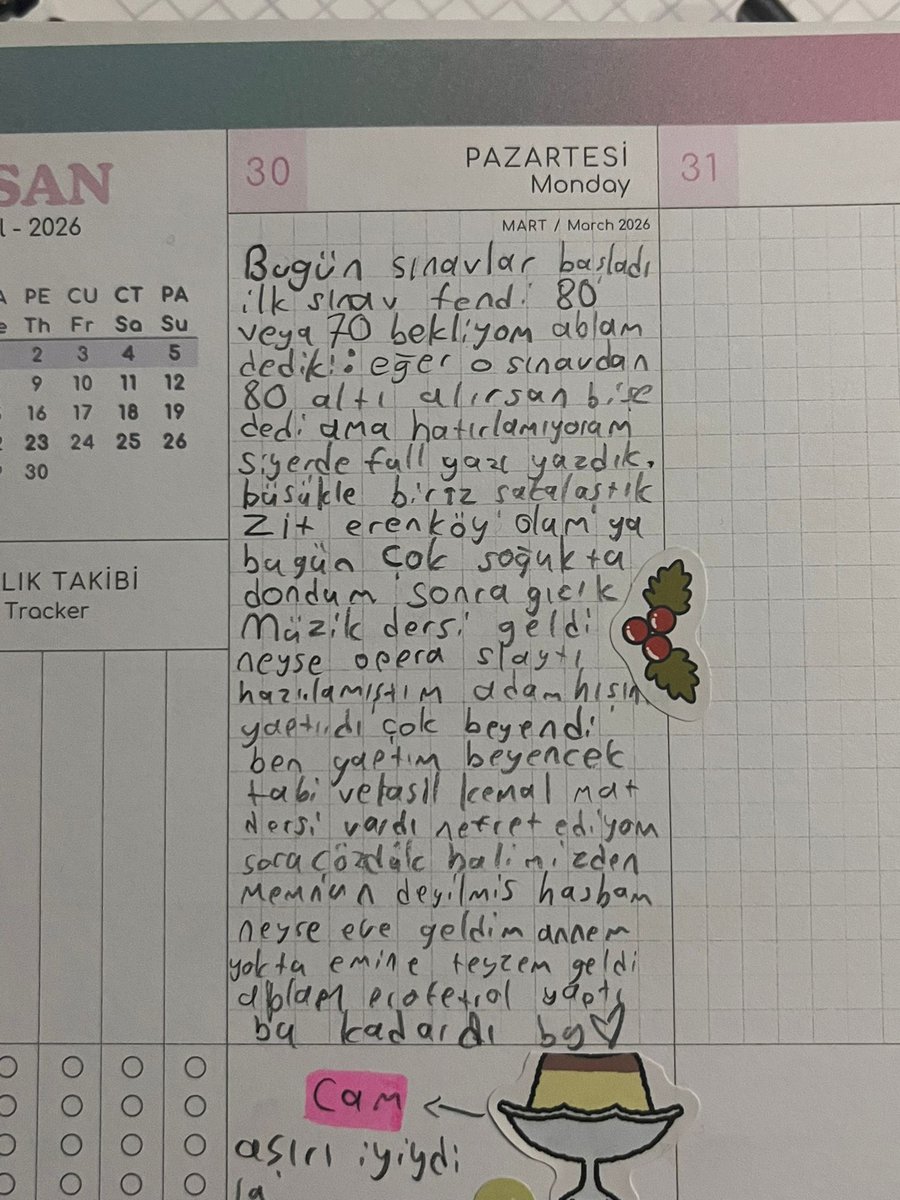 SAN
l - 2026
A PE CU CT PA
e Th Fr Sa Su
2 3 4 5
9 10 11 12
16 17 18 19
23 24 25 26
30
LIK TAKİBİ
Tracker
30
PAZARTESİ
Monday
MART / March 2026
Bugün sınavlar başladı
ilk sınav fendi 80
veya 70 bekliyom ablam
dediki: eğer o sınavdan
80 altı alırsan bişe
dedi ama hatırlamıyoram
siyerde full yazı yazdık.
büsükle biriz satalaştık
zit erenköy olam ya
bugün çok soğukta
dondum sonra gıcık
Müzik dersi geldi
neyse opera slaytı
hazıılamıştım adam hışın
yaptıdı çok beyendi
ben yaptım beyencek
tabi velasıl kemal mat
dersi vardı nefret ediyom
sora çözdük halimizden
memnun deyilmis hasbam
neyse eve geldim annem
yokta emine teyzem geldi
ablam yaptı
bu kadardı by♡
Cam
aşırı iyiydi
la
31